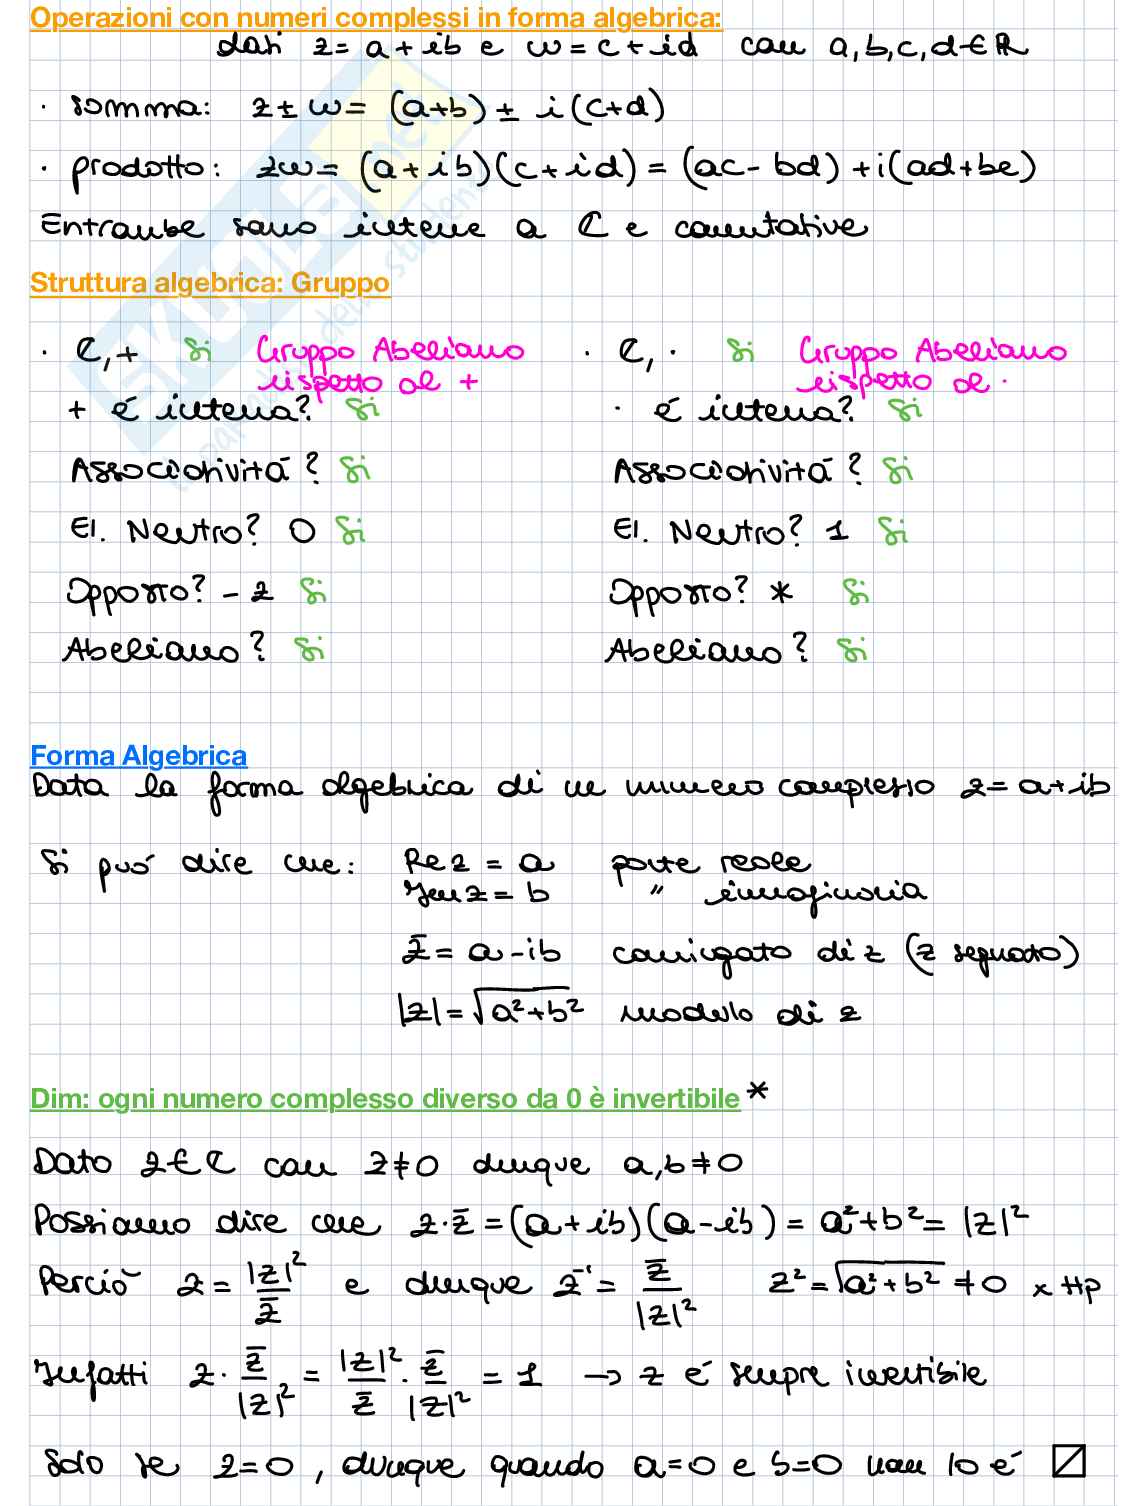 Operazioni con numeri complessi in forma algebrica:
dati z = a + ib e w = c + id con a, b, c, d ∈ ℝ
· somma: z ± w = (a+b) ± i(c+d)
· prodotto: zw = (a + ib)(c + id) = (ac - bd) + i(ad + bc)
Entrambe sono interne a ℂ e commutative
Struttura algebrica: Gruppo
· ℂ, + Si Gruppo Abeliano rispetto al +
+ é interna? Si
Associativitá? Si
El. Neutro? 0 Si
Opposto? -z Si
Abeliano? Si
· ℂ, · Si Gruppo Abeliano rispetto al ·
· é interna? Si
Associativitá? Si
El. Neutro? 1 Si
Opposto? * Si
Abeliano? Si
Forma Algebrica
Data la forma algebrica di un numero complesso z = a + ib
Si puó dire che: Re z = a parte reale
Im z = b " immaginaria
z̄ = a - ib coniugato di z (z segnato)
|z| = √(a² + b²) modulo di z
Dim: ogni numero complesso diverso da 0 è invertibile *
Dato z ∈ ℂ con z ≠ 0 dunque a, b ≠ 0
Possiamo dire che z · z̄ = (a + ib)(a - ib) = a² + b² = |z|²
Perciò z = |z|²/z̄ e dunque z⁻¹ = z̄/|z|² z² = √(a² + b²) ≠ 0 x Hp
Infatti z · z̄/|z|² = |z|²/z̄ · z̄/|z|² = 1 → z é sempre invertibile
Solo se z = 0, dunque quando a = 0 e b = 0 non lo é
SKUOLA.net